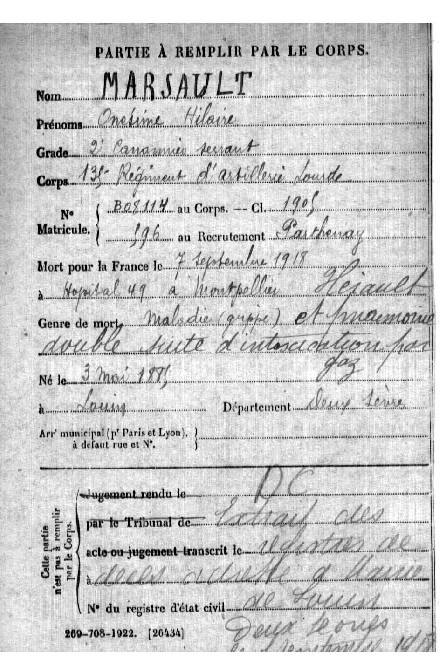 PARTIE À REMPLIR PAR LE CORPS.
Nom MARSAULT
Prénoms Onésime Hilaire
Grade 2e Canonnier servant
Corps 135e Régiment d'artillerie lourde
No Matricule. { B08114 au Corps. — Cl. 1905
596 au Recrutement Parthenay
Mort pour la France le 7 septembre 1918
à Hopital 49 à Montpellier Hérault
Genre de mort Maladie (grippe) et pneumonie
double suite d'intoxication par
gaz
Né le 3 Mai 1885
à Louin Département Deux Sèvres
Arrt municipal (pr Paris et Lyon), à défaut rue et No. }
Cette partie n'est pas à remplir par le Corps.
DC
Jugement rendu le
par le Tribunal de Extrait des
acte ou jugement transcrit le registres de
à décès de la Mairie
No du registre d'état civil de Louin
Deux Sèvres
269-708-1922. [26434]
septembre